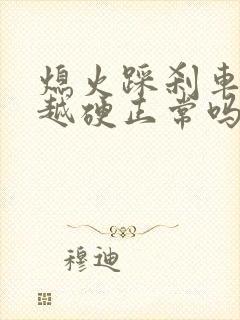 熄火踩刹車
越硬正常吗
穆迪